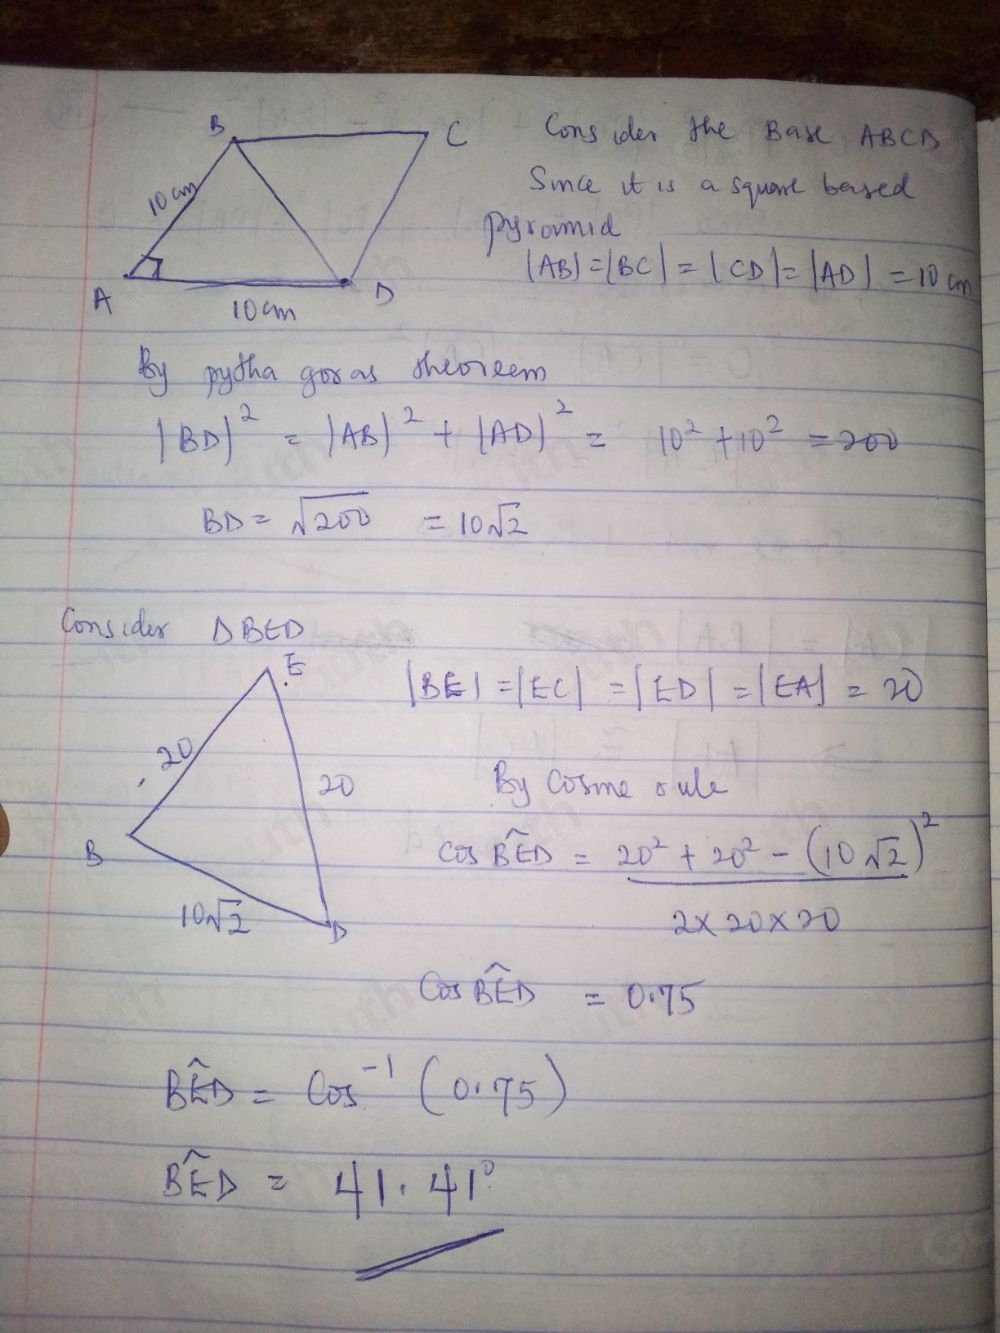 B
C
10cm
A
10cm
D
Consider the Base ABCD
Since it is a square based
pyramid
|AB|=|BC|=|CD|=|AD| =10cm
By pythagoras theorem
|BD|² = |AB|² + |AD|² = 10² +10² =200
BD= √200 = 10√2
Consider ΔBED
E
20
20
B
10√2
D
|BE| =|EC| =|ED| =|EA| = 20
By Cosine rule
Cos BÊD = 20² + 20² - (10√2)²
2×20×20
Cos BÊD = 0.75
BÊD = Cos⁻¹ (0.75)
BÊD = 41.41°